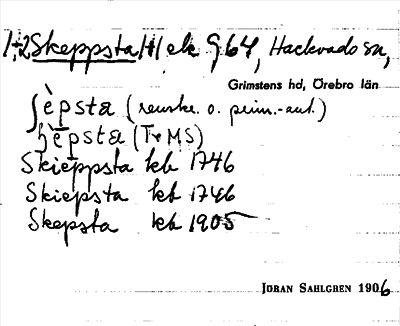 1,+2 Skeppsta /+/ ek G 64, Hackvad sn,
Grimstens hd, Örebro län
ʃèpsta (svenskt. o. prim.-aut.)
ꜧèpsta (TrMS)
Skieppsta kb 1746
Skiepsta kb 1746
Skepsta kb 1905
JÖRAN SAHLGREN 1906